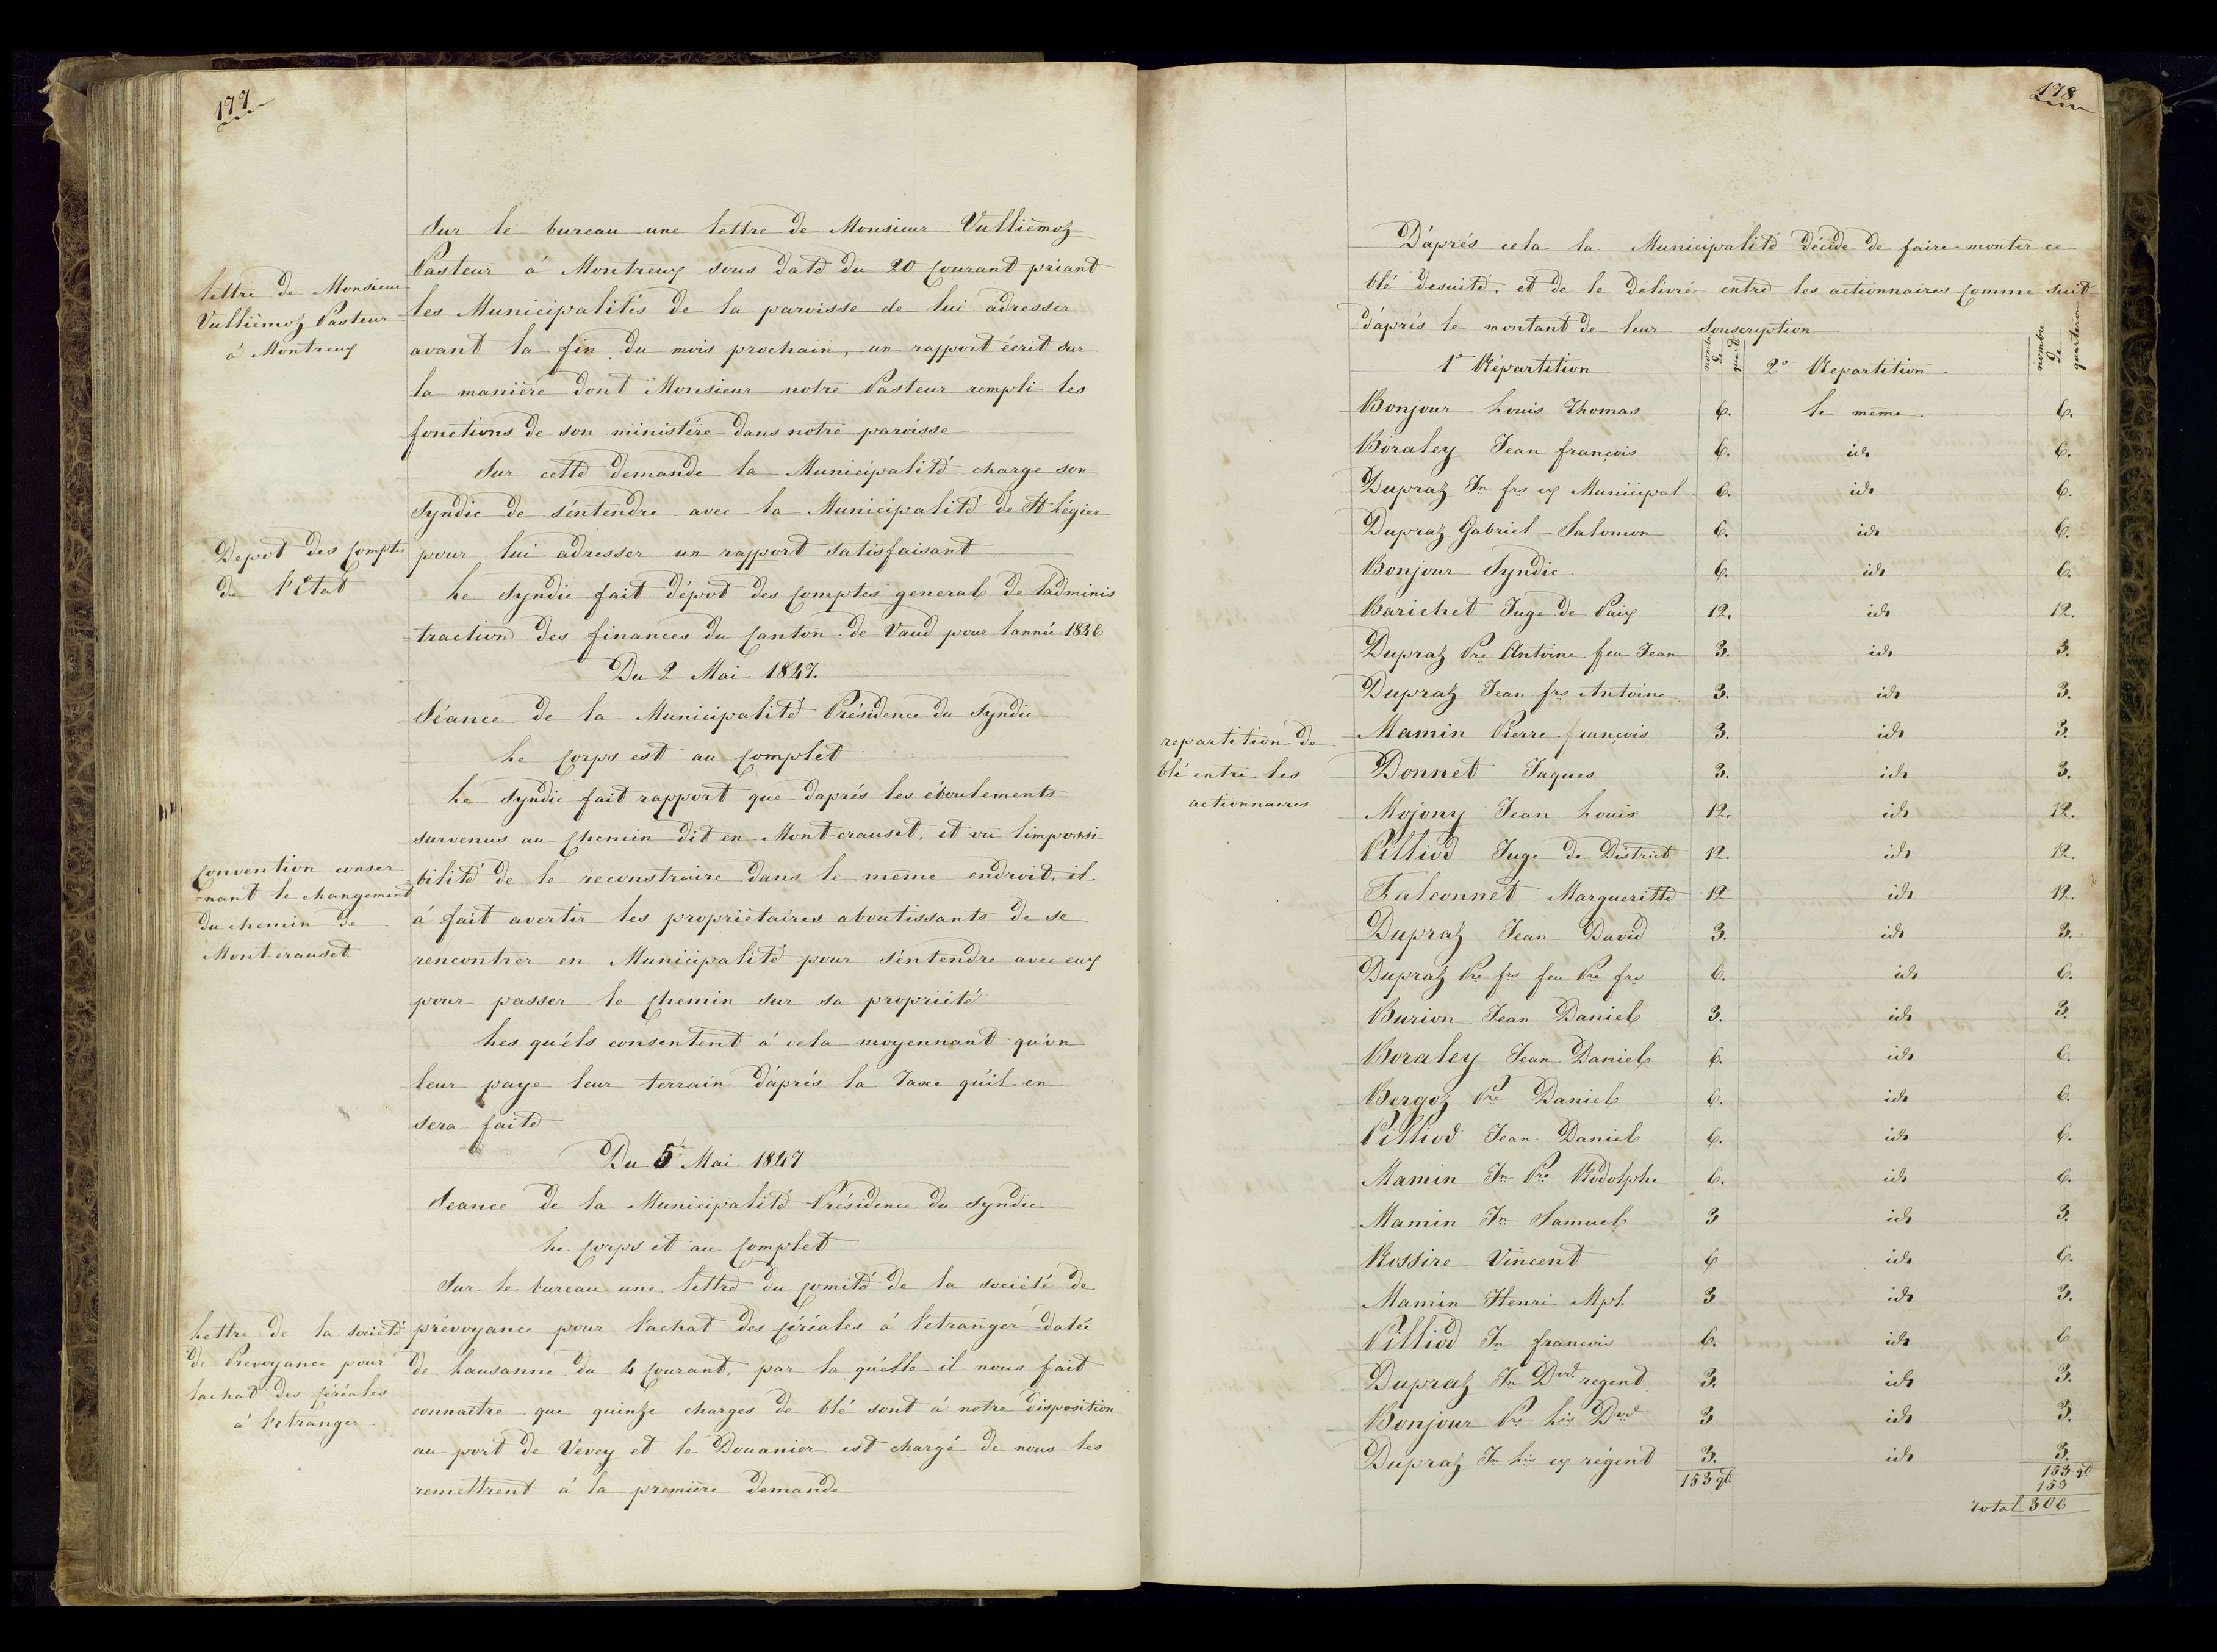 177
Sur le bureau une lettre de Monsieur Vulliémoz
Pasteur á Montreux sous daté du 20 Courant priant
les Municipalités de la paroisse de lui adresser
avant la fin du mois prochain, un rapport écrit sur
la maniére dont Monsieur notre Pasteur rempli les
fonctions de son ministére dans notre paroisse
lettre de Monsieur
Vulliémoz Pasteur
á Montreux
Sur cetté demande la Municipalité charge son
Syndic de s'éntendre avec la Municipalité de St Légier
pour lui adresser un rapport satisfaisant
Le Syndic fait dépot des Comptes general de l'adminis
=traction des finances du Canton de Vaud pour l'année 1846
Depot des Comptes
de l'Etat
Du 2 Mai 1847.
Séance de la Municipalité Présidence du Syndic
Le Corps est au Complet
Le Syndic fait rapport que d'aprés les éboulements
survenus au Chemin dit en Mont-crauset, et vu l'impossi
=bilité de le reconstruire dans le même endroit, il
á fait avertir les propriétaires aboutissants de se
rencontrer en Municipalité pour s'éntendre avec eux
pour passer le Chemin sur sa propriété
Convention conser
=nant le changement
du chemin de
Mont-crauset
Les qu'éls consentent á cela moyennant qu'on
leur paye leur terrain d'aprés la Taxe qu'il en
sera faite
Du 5é Mai 1847
Seance de la Municipalité Présidence du Syndic
Le Corps et au Complet
Sur le bureau une lettre du Comité de la société de
prévoyance pour l'achat des Céréales á l'etranger datée
de Lausanne du 4 Courant, par la qu'elle il nous fait
connaitre que quinze charges de blé sont á notre disposition
au port de Vevey et le Douanier est chargé de nous les
remettrent á la premiére demande
Lettre de la société
de Prevoyance pour
lachat des Céréales
á l'etranger
178
D'aprés cela la Municipalité décide de faire monter ce
blé desuité, et de le délivré entre les actionnaires Comme suit
d'áprés le montant de leur Souscription
repartition de
blé entre les
actionnaires
1e Répartition nombre de quart 2e Repartition. nombre de quarteron
Bonjour Louis Thomas 6. le meme. 6.
Boraley Jean françois 6. id 6.
Dupraz Jn frs ex Municipal 6. id 6.
Dupraz Gabriel Salomon 6. id 6.
Bonjour Syndic 6. id 6.
Barichet Juge de Paix 12. id 12.
Dupraz Pre Antoine feu Jean 3. id 3.
Dupraz Jean frs Antoine 3. id 3.
Mamin Pierre françois 3. id 3.
Donnet Jaques 3. id 3.
Mojony Jean Louis 12. id 12.
Pilliod Juge de District 12. id 12.
Falconnet Margueritte 12 id 12.
Dupraz Jean David 3. id 3.
Dupraz Pre frs feu Pre frs 6. id 6.
Burion Jean Daniel 3. id 3.
Boraley Jean Daniel 6. id 6.
Bergoz Pre Daniel 6. id 6.
Pilliod Jean Daniel 6. id 6.
Mamin Jn Pre Rodolphe 6. id 6.
Mamin Jn Samuel 3 id 3.
Rossire Vincent 6 id 6.
Mamin Henri Mpl. 3 id 3.
Pilliod Jn francois 6. id 6
Dupraz Jn Dvd regent 3. id 3.
Bonjour Pre Lis Dvd 3 id 3.
Dupraz Jn Lis ex régent 3. id 3.
153 qt 153 qt
153
Total 306